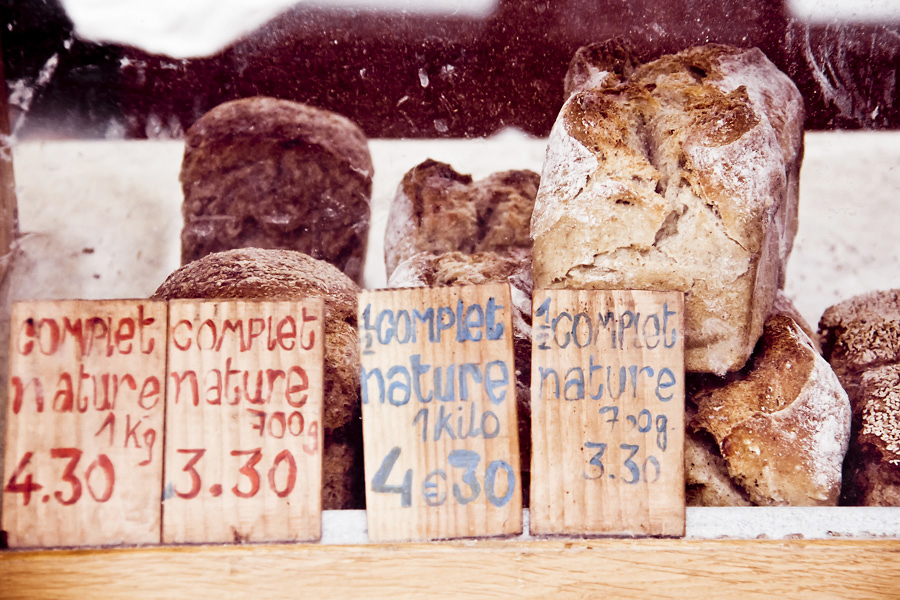 complet
nature
1kg
4.30
complet
nature
700g
3.30
½complet
nature
1kilo
4€30
½complet
nature
700g.
3.30